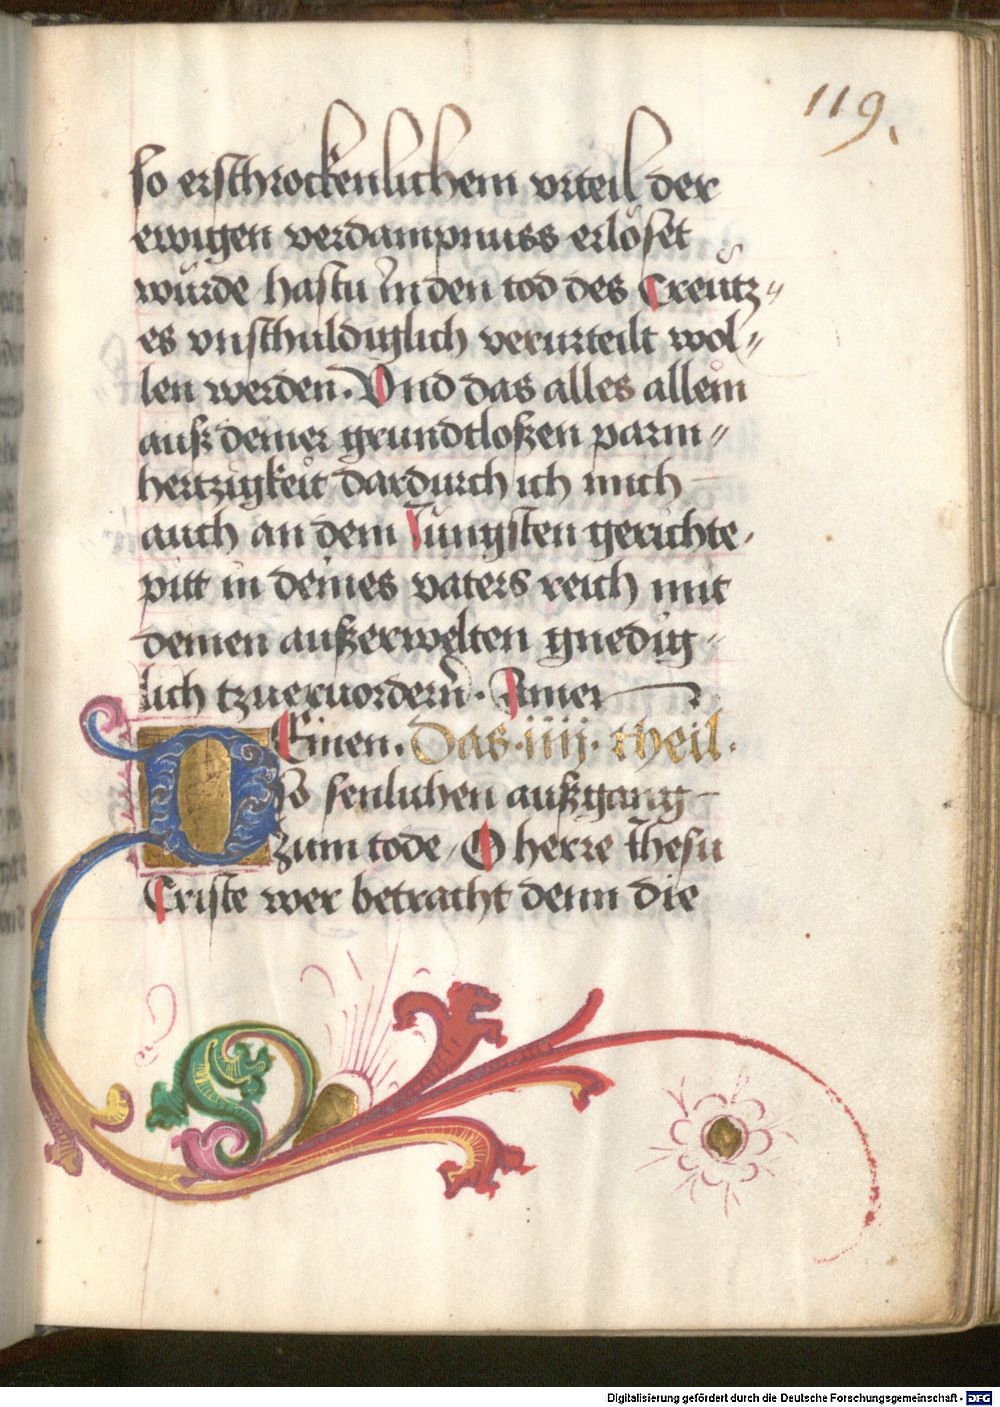 119.
so erschrockenlichem vrteil der
ewigen verdampnuss erlöset
würde hastu in den tod des Creütz〃
es vnschuldiglich verurteilt wol〃
len werden. Vnd das alles allein
auß deiner grundtloßen parm〃
hertzigkeit dardurch ich mich
auch an dem Jüngsten gerichte,
pitt in deines vaters reich mit
deinen außerwelten gnedig〃
lich tzueruordern. Amen
DEinen. Das .iiij. theil.
So senlichen außgang
zum tode, O herre Jhesu
Criste wer betracht denn die
Digitalisierung gefördert durch die Deutsche Forschungsgemeinschaft - DFG